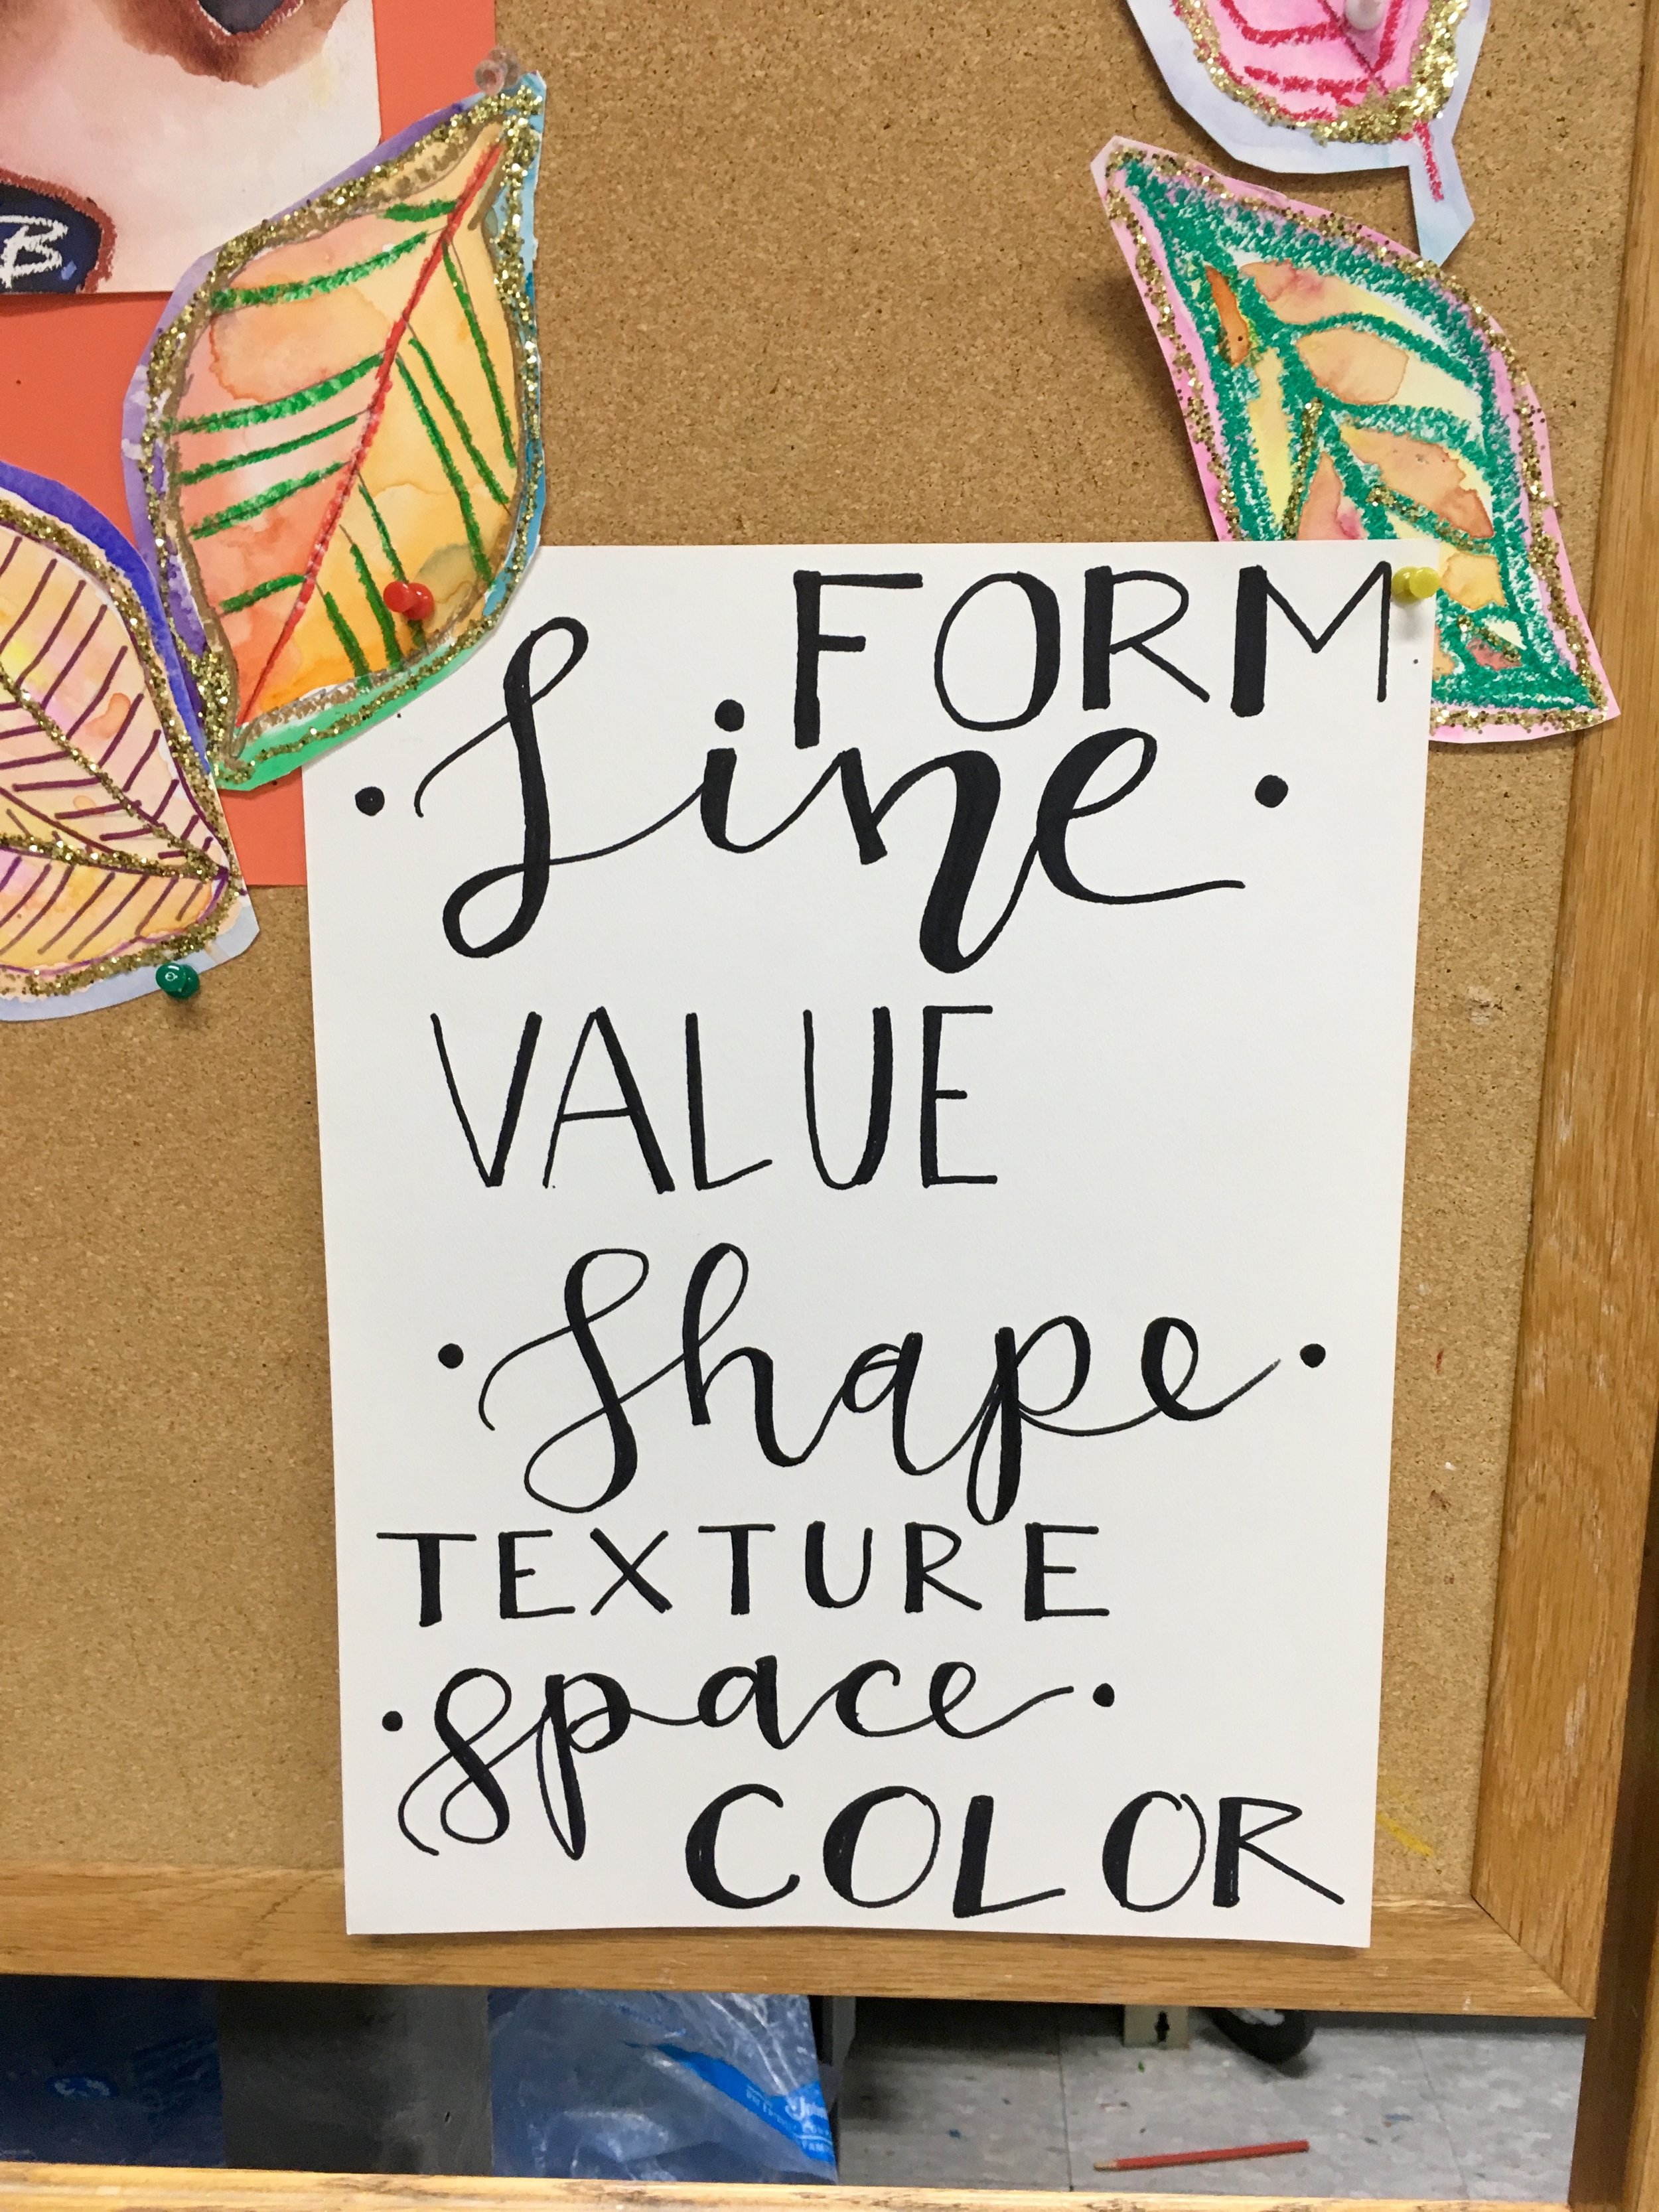 B
FORM
• Line •
VALUE
• Shape •
TEXTURE
• space •
COLOR